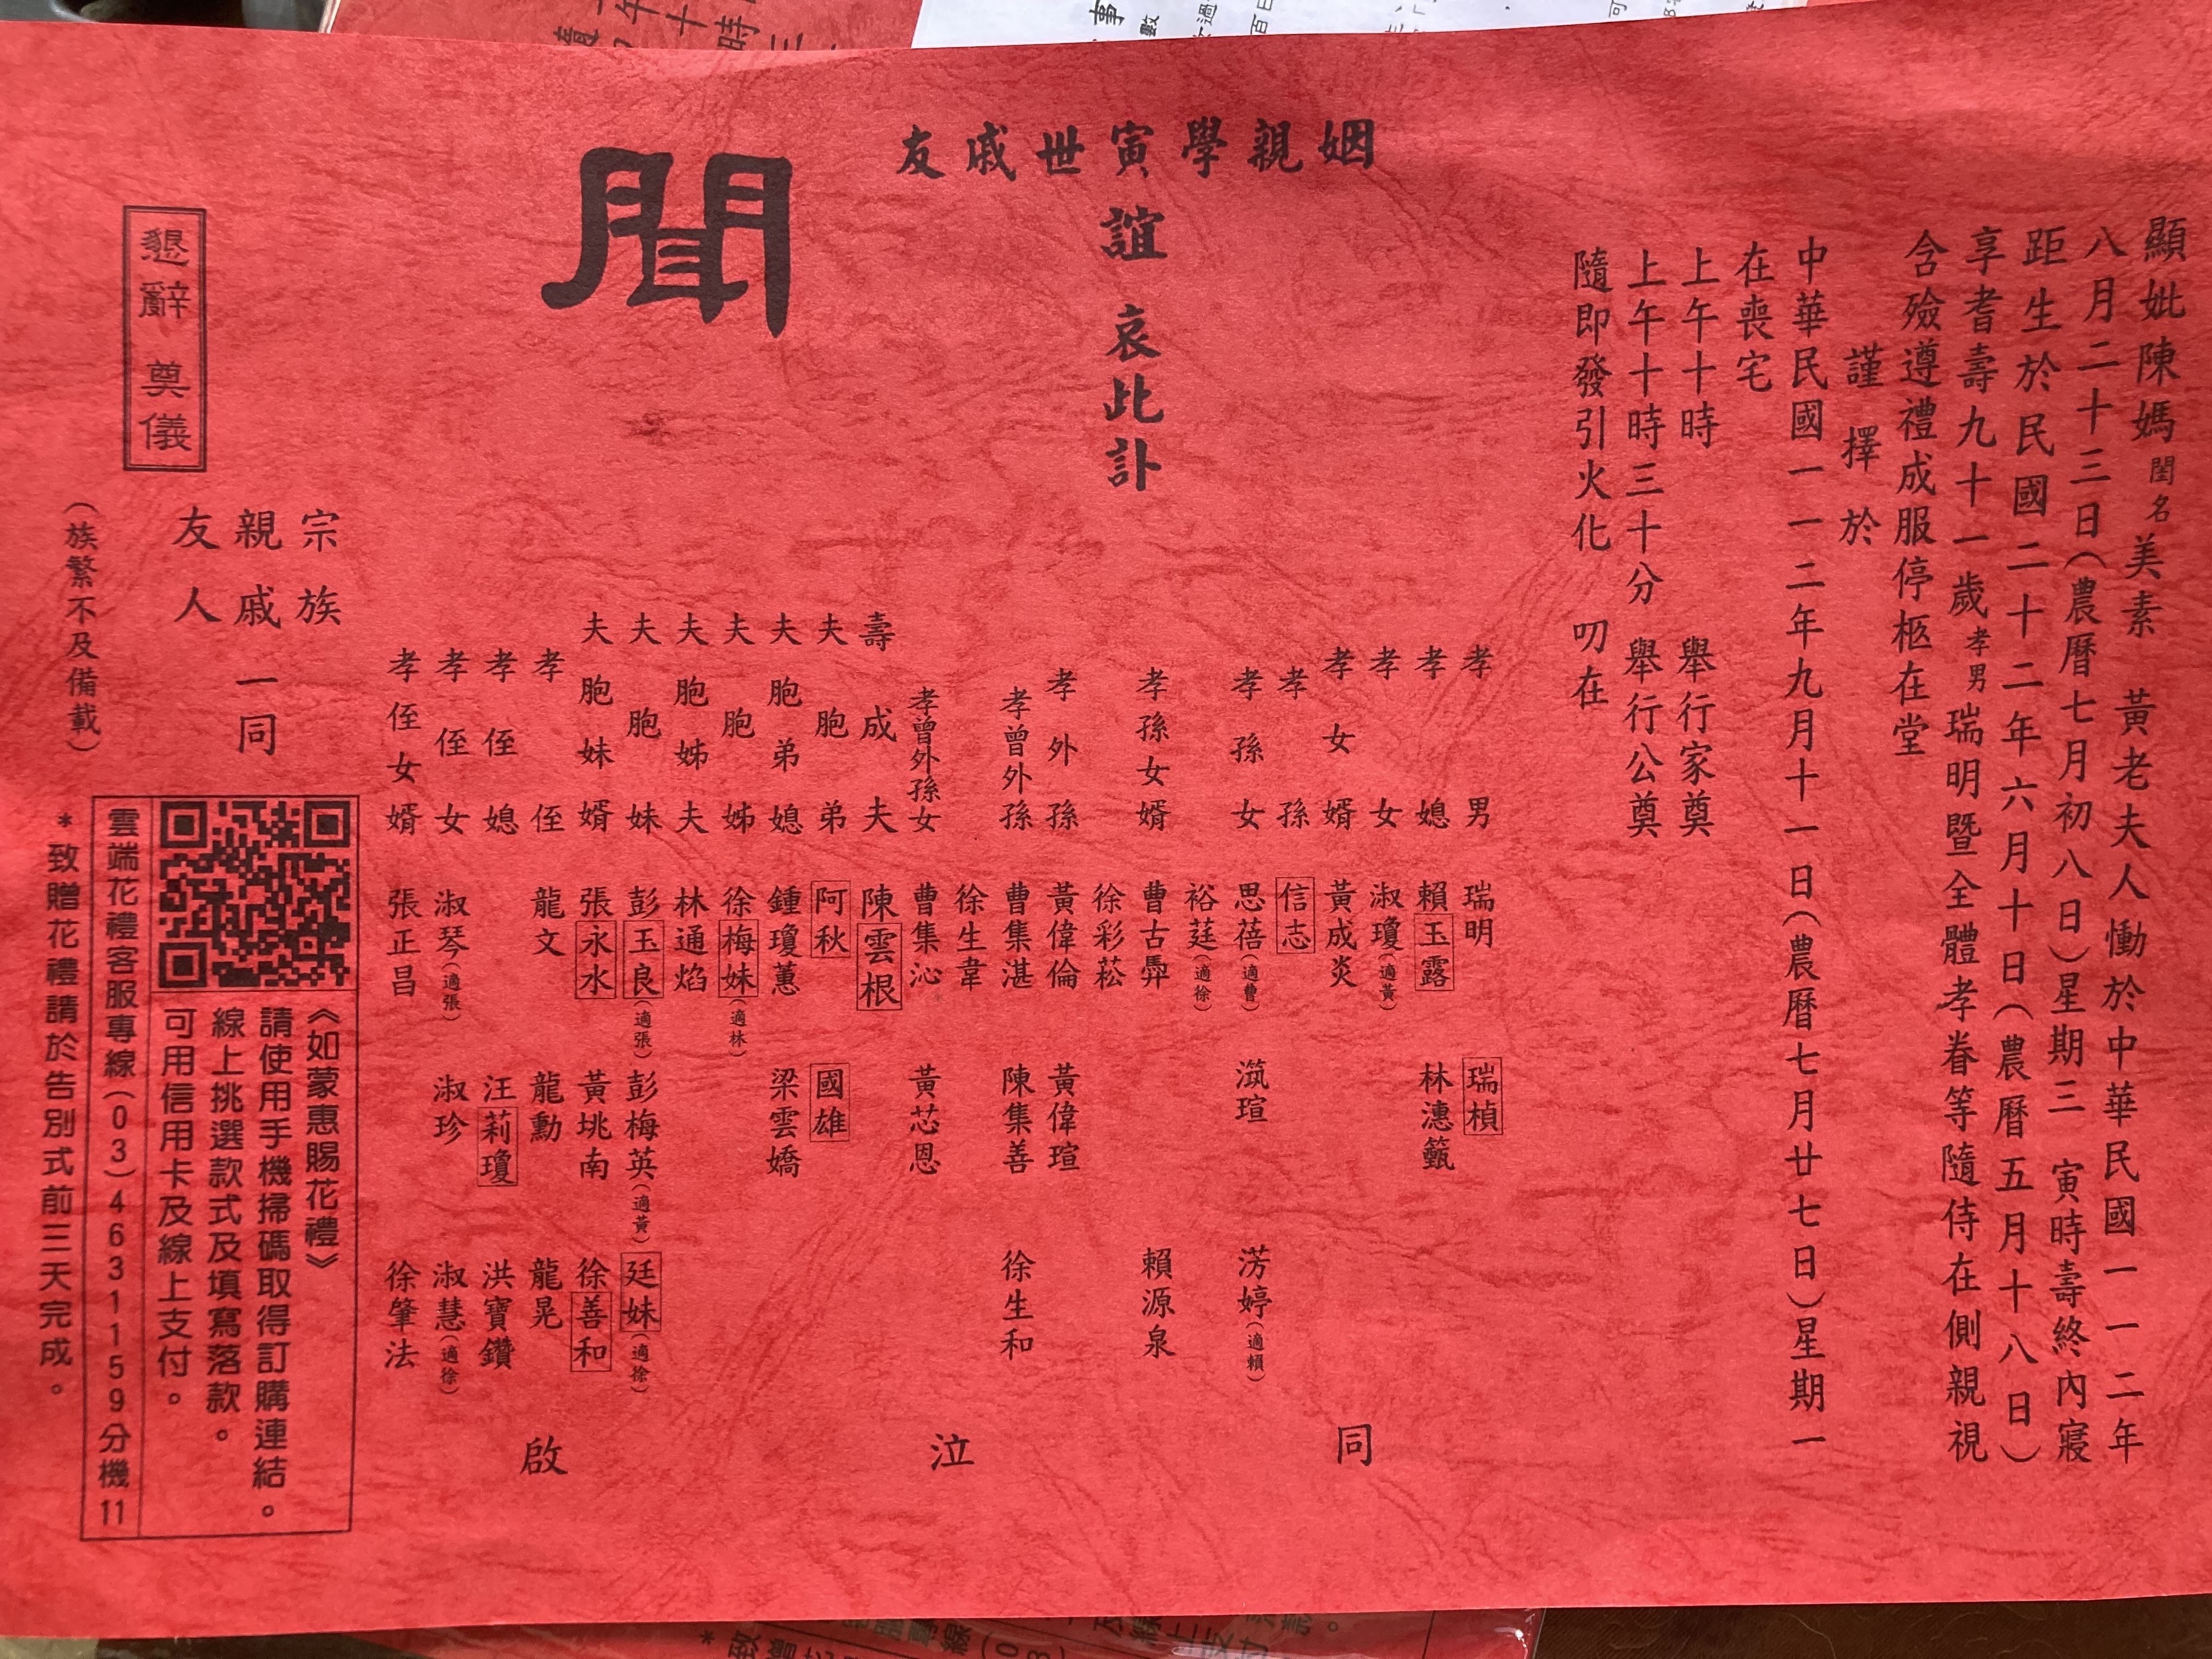 顯妣陳媽閨名美素　黃老夫人慟於中華民國一一二年
八月二十三日(農曆七月初八日)星期三　寅時壽終內寢
距生於民國二十二年六月十日(農曆五月十八日)
享耆壽九十一歲孝男瑞明暨全體孝眷等隨侍在側親視
含殮遵禮成服停柩在堂
謹擇於
中華民國一一二年九月十一日(農曆七月廿七日)星期一
在喪宅
上午十時　舉行家奠
上午十時三十分　舉行公奠
隨即發引火化　叨在
姻親學寅世戚友
誼　哀此訃
聞
孝男　瑞明　瑞楨
孝媳　賴玉露　林漶籈
孝女　淑瓊(適黃)
孝女婿　黃成炎
孝孫　信志
孝孫女　思蓓(適曹)　瀷瑄　淓婷(適賴)
裕莛(適徐)
孝孫女婿　曹古羿　賴源泉
徐彩菘
孝外孫　黃偉倫　黃偉瑄
孝曾外孫　曹集湛　陳集善　徐生和
徐生韋
孝曾外孫女　曹集沁　黃芯恩
壽成夫　陳雲根
夫胞弟　阿秋　國雄
夫胞弟媳　鍾瓊蕙　梁雲嬌
夫胞姊　徐梅妹(適林)
夫胞姊夫　林通焰
夫胞妹　彭玉良(適張)　彭梅英(適黃)　廷妹(適徐)
夫胞妹婿　張永水　黃垗南　徐善和
孝侄　龍文　龍勳　龍晃
孝侄媳　汪莉瓊　洪寶鑽
孝侄女　淑琴(適張)　淑珍　淑慧(適徐)
孝侄女婿　張正昌　徐肇法
同　泣　啟
宗族
親戚　一同
友人
(族繁不及備載)
懇辭　奠儀
《如蒙惠賜花禮》
請使用手機掃碼取得訂購連結。
線上挑選款式及填寫落款。
可用信用卡及線上支付。
雲端花禮客服專線(03)4631159分機11
*致贈花禮請於告別式前三天完成。